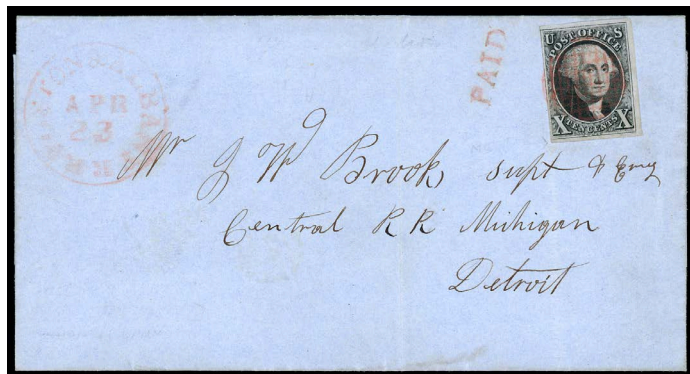 BOSTON & ALBANY
APR
23
R.R.
PAID
U S
POST OFFICE
X TEN CENTS X
Mr J W Brooks supt & Eng
Central R R Michigan
Detroit